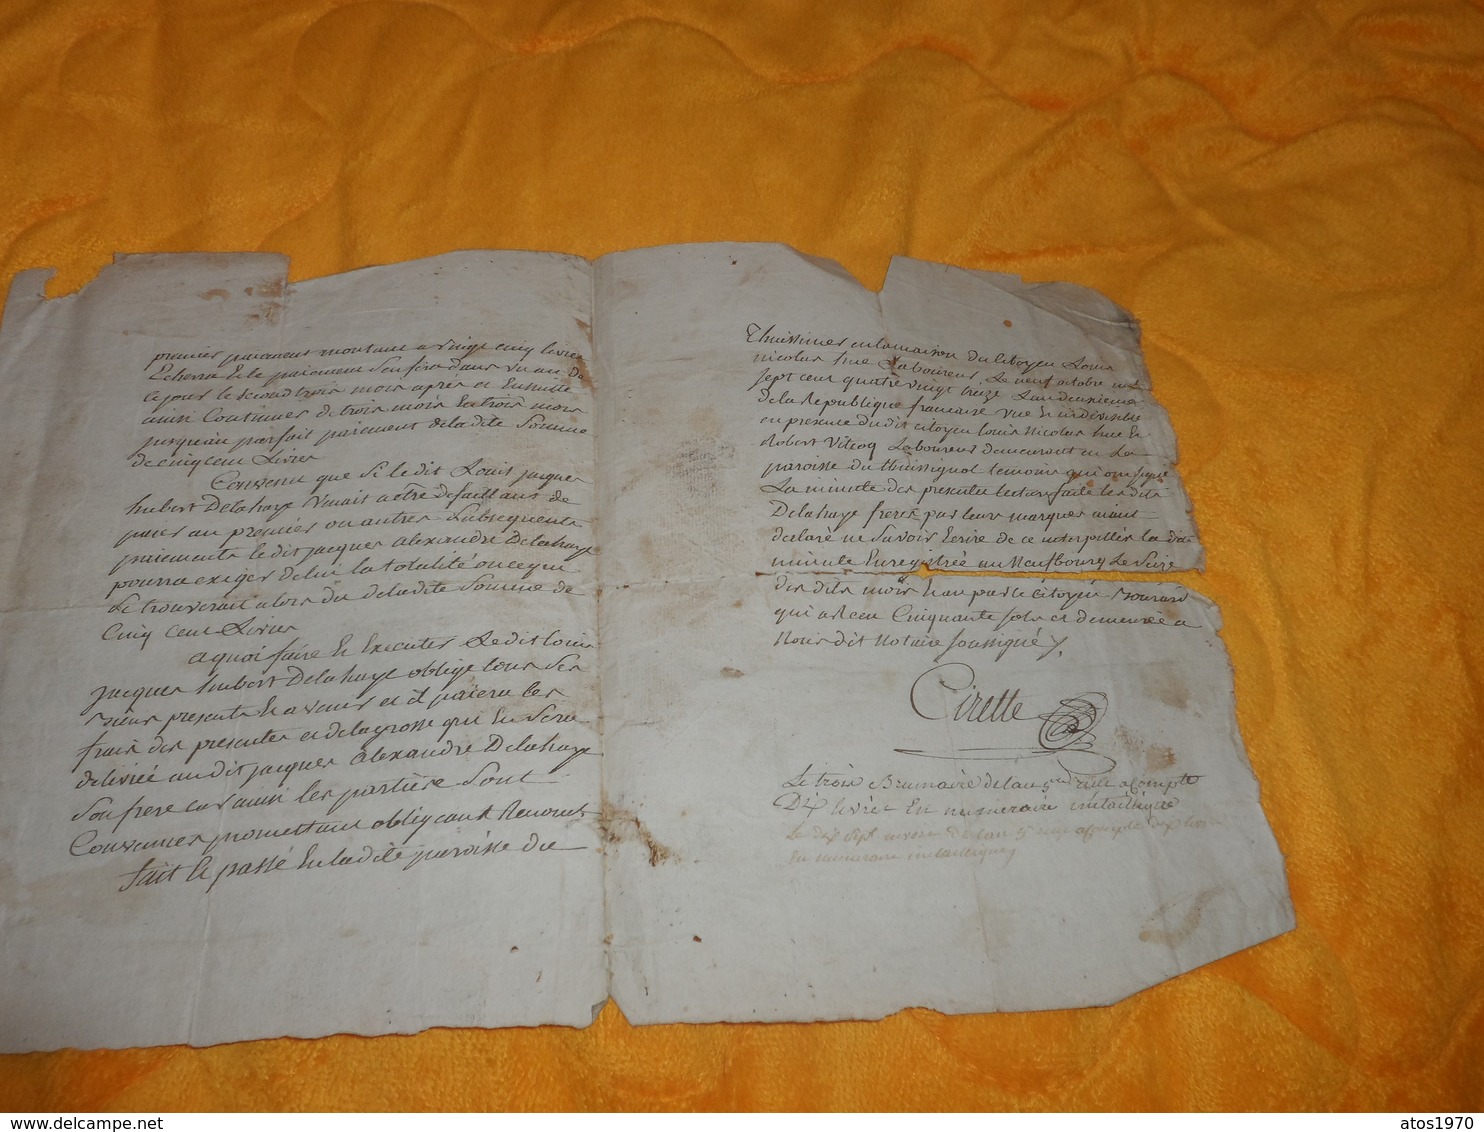 premier paiement montant a vingt cinq livres
Echerra & le paiement Sen fera dans
ce jour le second trois mois apres et Ensuitte
ainsi Continuer de trois mois En trois mois
jusquau parfait paiement deladite Somme
de cinq cent Livres
Convenu que Si le dit Louis jacques
hubert Delahaye Venait a etre defaillant de
paier au premier ou autres Subsequents
paiements le dit jacques alexandre Delahaye
pourra exiger delui la totalité ou ce qui
Se trouverait alors du deladite Somme de
Cinq cent Livres
a quoi faire & Executer Ledit louis
jacques hubert Delahaye oblige tous Ses
Biens presents & a venir et il paiera les
frais des presentes et delagrosse qui En Sera
delivrée audit jacques alexandre Delahaye
Son frere car ainsi les parties Sont
Convenues promettant obligeant Renonct
fait & passé Enladite paroisse du
thuissignol en la maison du Citoyen Louis
nicolas hue Laboureur, Le neuf octobre mil
sept cent quatre vingt treize Lan deuxieme
dela Republique francaise une & indivisible
en presence dudit citoyen louis Nicolas hue &
Robert Vitcoq Laboureur demeurant en La
paroisse du thuissignol temoins qui ont signé
La minute des presentes lecture faite les dits
Delahaye freres par leurs marques aiant
declaré ne Savoir Ecrire de ce interpellés la dite
minute Enregistrée au Neufbourg Le Seize
des dits mois & an par le citoyen
qui a Recu Cinquante sols et demeurée a
Nous dit Notaire soussigné
Cirette
Le trois Brumaire de lan 5 Recu acompte
Dix livres En numeraire metallique
Le dix sept nivose de lan 5 recu acompte dix livres
En numeraire metallique